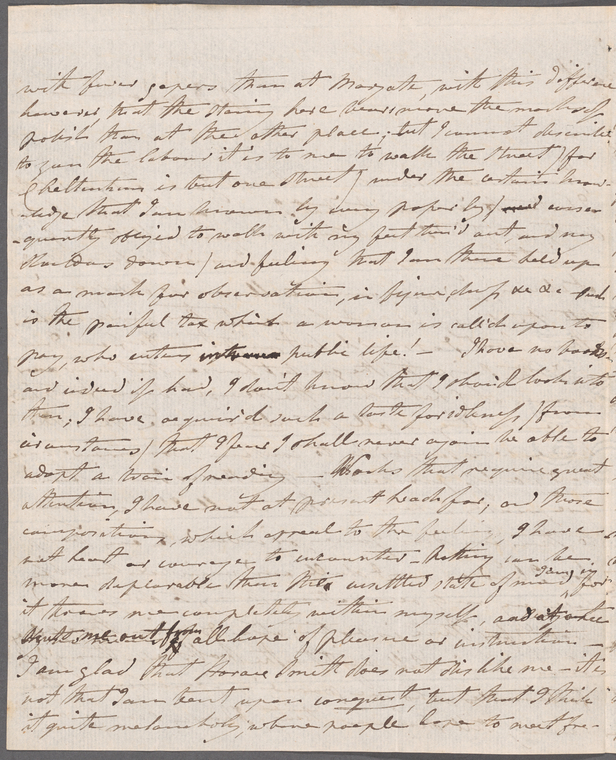 with fewer gapers than at Margate, with this difference
however that the staring here bears more the marks of
polish than at the other place; but I cannot describe
to you the labour it is to me to walk the street) for
Cheltenham is but one street) under the certain know-
ledge that I am known by every passer by) and conse-
-quently obliged to walk with my feet turn'd out, and my
shoulders down) and feeling that I am there held up
as a mark for observation, in figure, dress &c &c - Such
is the painful tax which a woman is call'd upon to
pay, who enters into public life! — I have no books,
and indeed if I had, I don't know that I should look into
them; I have acquir'd such a taste for idleness) from
circumstances) that I fear I shall never again be able to
adopt a train of reading — Works that require great
attention, I have not at present head for, and those
compositions, which appeal to the feelings, I have
not heart or courage to encounter - Nothing can be
more deplorable than this unsettled state of mind I am in, for
it throws me completely within myself, and
me out from all hope of pleasure or instruction —
I am glad that Horace Smith does not dislike me - it is
not that I am bent upon conquest, but that I think
it quite melancholy, where people have to meet fre-